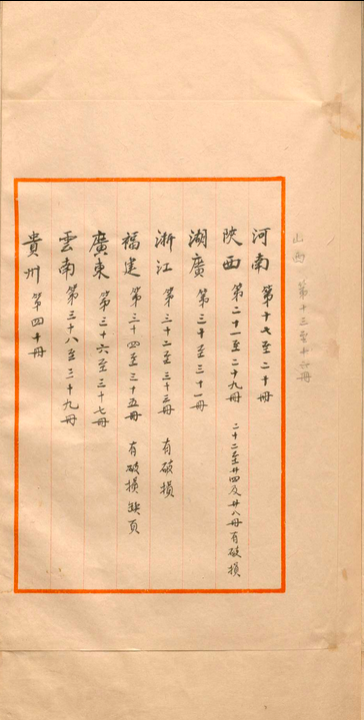 山西 第十三至十六冊
河南 第十七至二十冊
陝西 第二十一至二十九冊 二十二至廿四及廿八冊有破損
湖廣 第三十至三十一冊
浙江 第三十二至三十三冊 有破損
福建 第三十四至三十五冊 有破損缺頁
廣東 第三十六至三十七冊
雲南 第三十八至三十九冊
貴州 第四十冊